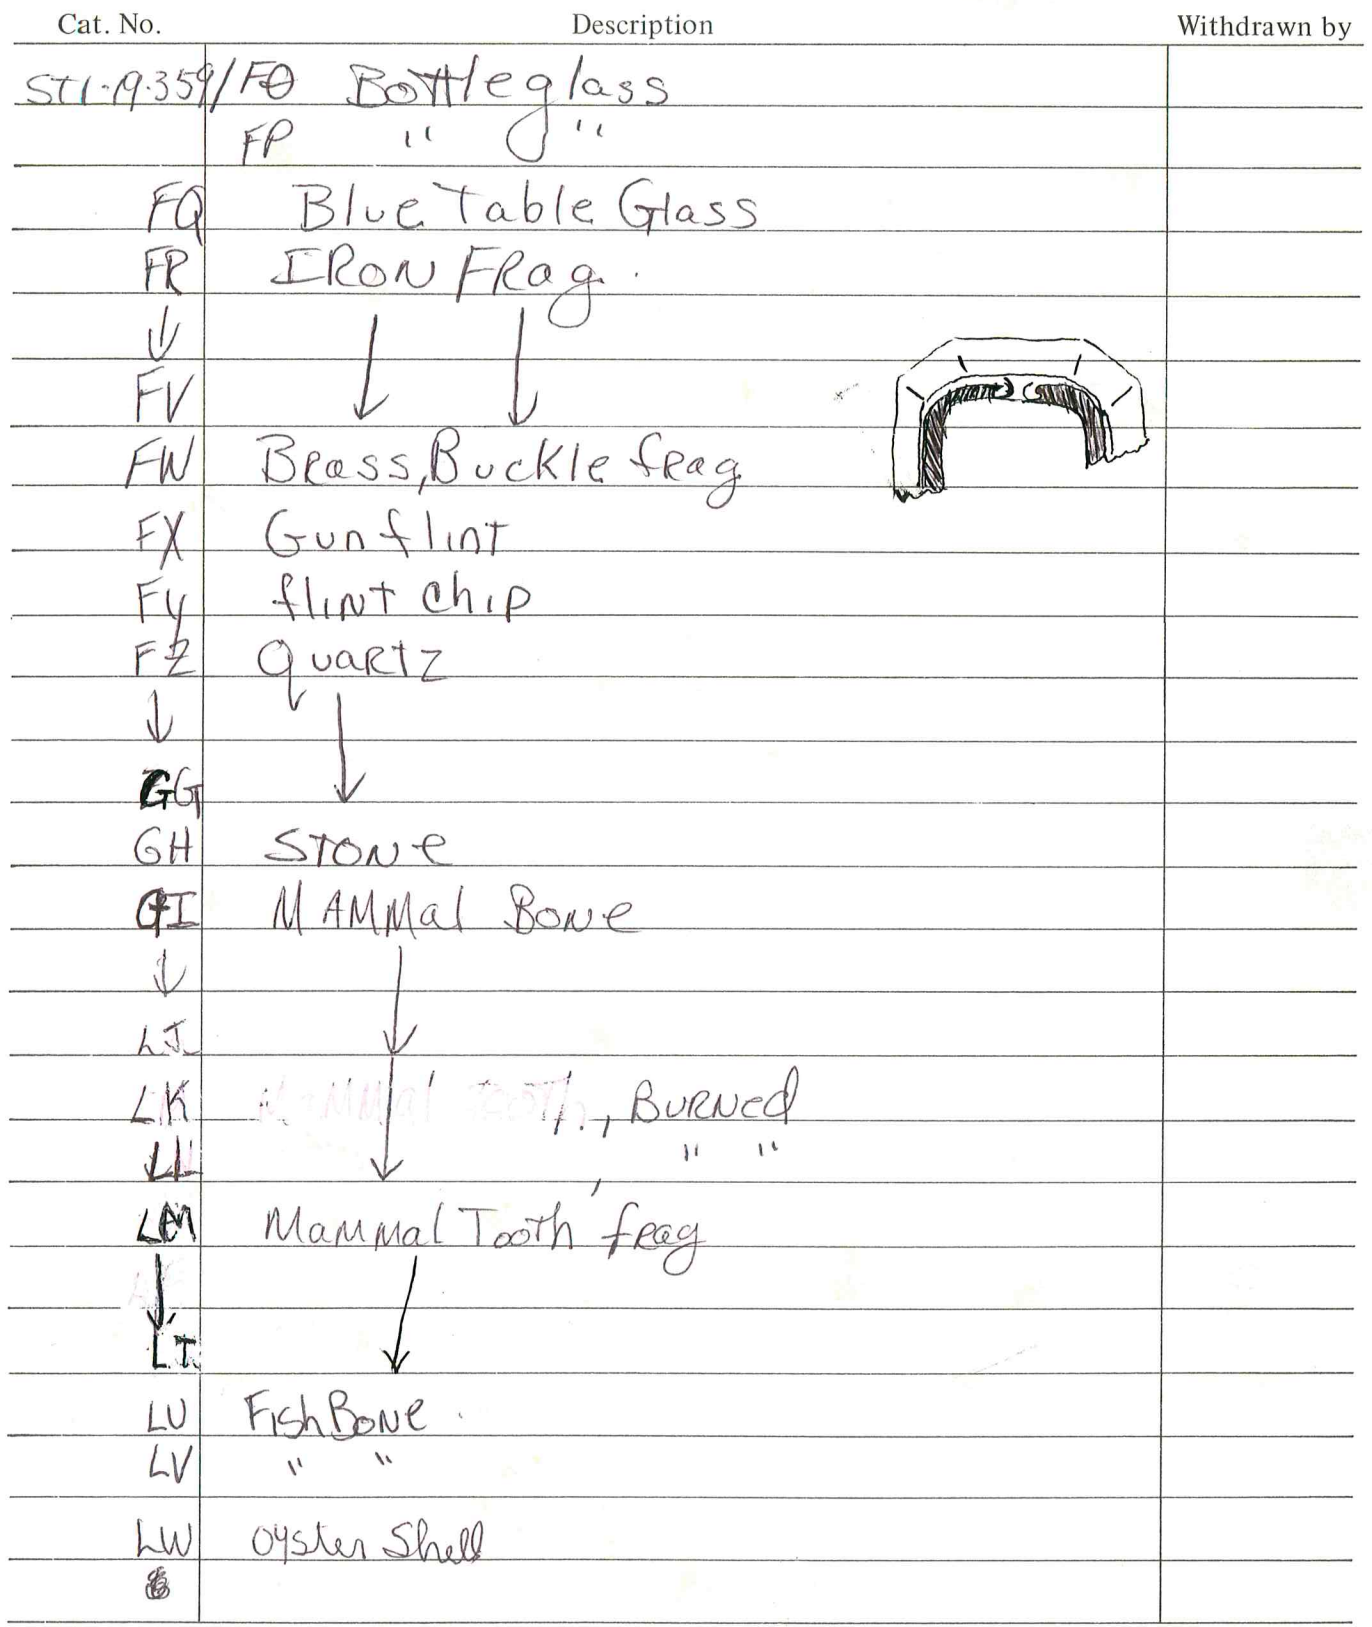 Cat. No. Description Withdrawn by
ST1-19-359/FO Bottle glass
FP " "
FQ Blue Table Glass
FR IRON FRag.
↓ ↓ ↓
FV
FW BRass, Buckle fRag
FX Gun flint
FY flint chip
FZ QuaRtz
↓ ↓
GG
GH STONe
GI MAMMal BoNe
↓ ↓
LJ
LK , BURNed
LL " "
LM Mammal Tooth, fRag
↓ ↓
LT
LU Fish BoNe.
LV " "
LW oyster Shell